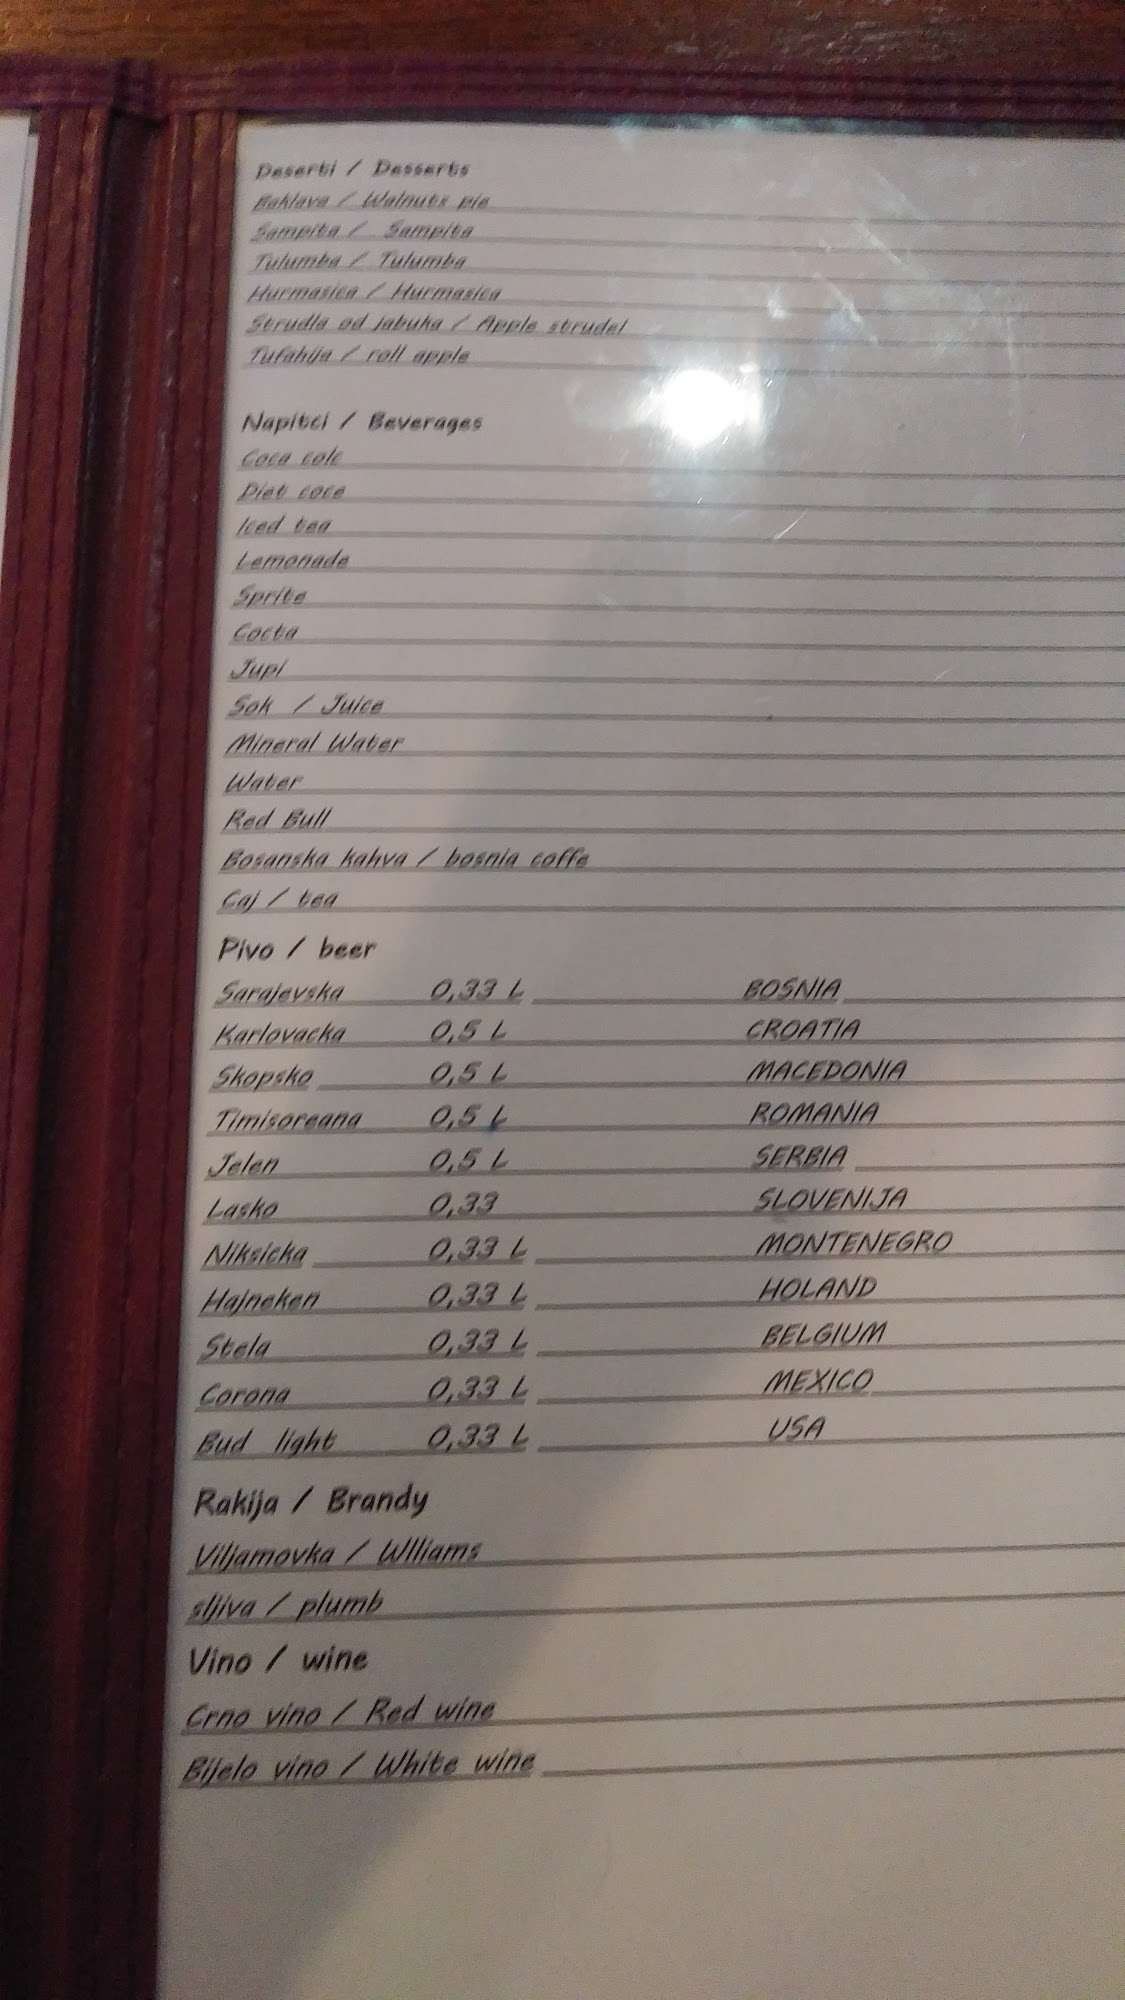 Deserti / Desserts
Baklava / Walnuts pie
Sampita / Sampita
Tulumba / Tulumba
Hurmasica / Hurmasica
Strudla od jabuka / Apple strudel
Tufahija / roll apple
Napitci / Beverages
Coca cole
Diet coce
Iced tea
Lemonade
Sprite
Cocta
Jupi
Sok / Juice
Mineral Water
Water
Red Bull
Bosanska kahva / bosnia coffe
Caj / tea
Pivo / beer
Sarajevska 0,33 L BOSNIA
Karlovacka 0,5 L CROATIA
Skopsko 0,5 L MACEDONIA
Timisoreana 0,5 L ROMANIA
Jelen 0,5 L SERBIA
Lasko 0,33 SLOVENIJA
Niksicka 0,33 L MONTENEGRO
Hajneken 0,33 L HOLAND
Stela 0,33 L BELGIUM
Corona 0,33 L MEXICO
Bud light 0,33 L USA
Rakija / Brandy
Viljamovka / Wlliams
sljiva / plumb
Vino / wine
Crno vino / Red wine
Bijelo vino / White wine